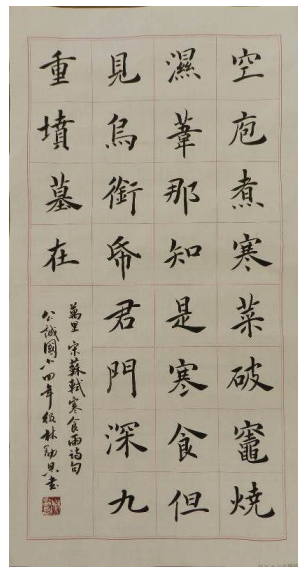 空庖煮寒菜破竈燒
濕葦那知是寒食但
見烏銜帋君門深九
重墳墓在
萬里 宋蘇軾寒食雨詩句
公誠國小四年級林勁書